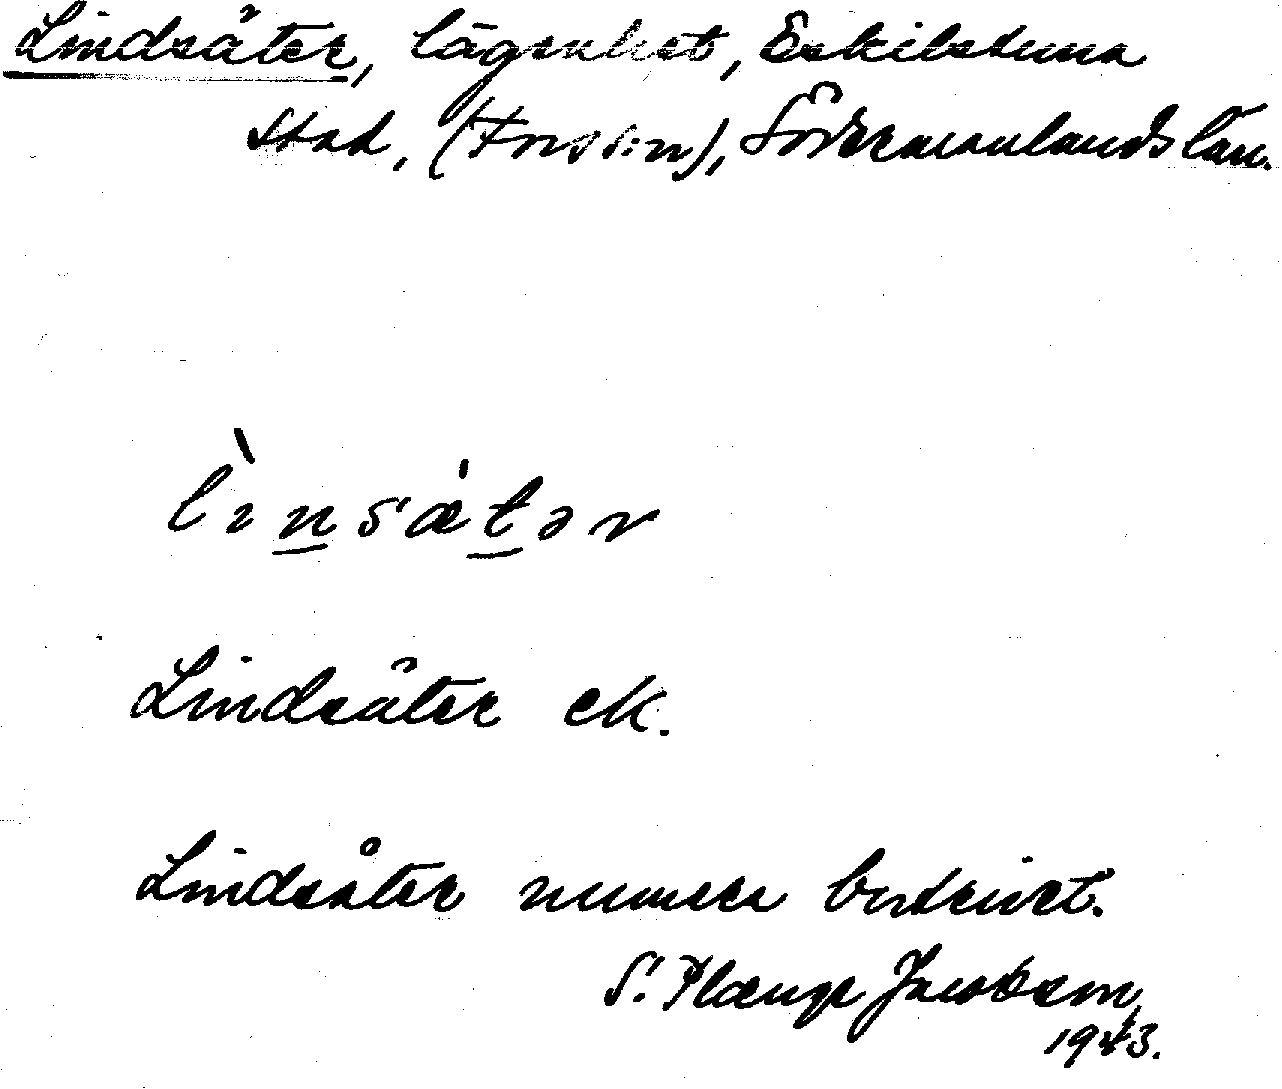 Lindsäter, lägenhet, Eskilstuna
stad, (Fors sn), Södermanlands län.
lìnsǽtər
Lindsäter ek.
Lindsäter numera bortrivet.
S. Plænge Jacobson,
1943.